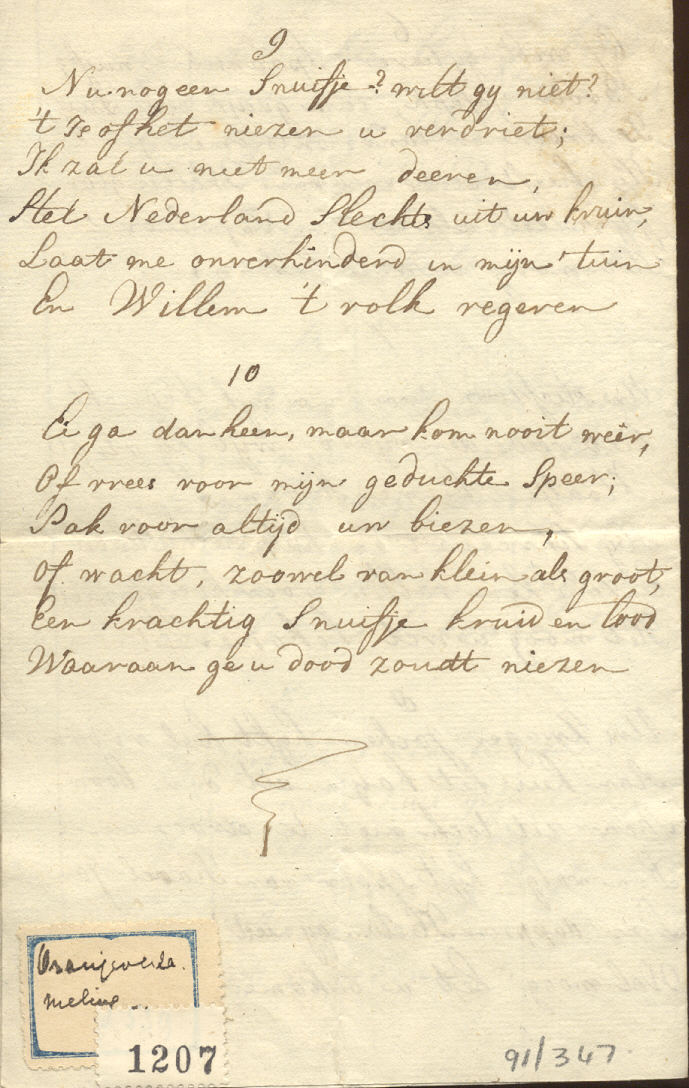 9
Nu nog een Snuifje? wilt gy niet?
't Is of het niezen u verdriet;
Ik zal u niet meer deeren,
Stel Nederland Slechts uit uw kruin,
Laat me onverhinderd in mijn tuin
En Willem 't volk regeren
10
Ei ga dan heen, maar kom nooit weêr,
Of vrees voor mijn geduchte Speer;
Pak voor altijd uw biezen,
Of wacht, zoowel van klein als groot,
Een krachtig Snuifje kruid en lood
Waaraan ge u dood zoudt niezen
Oranjeverza
meling..
1207
91/347